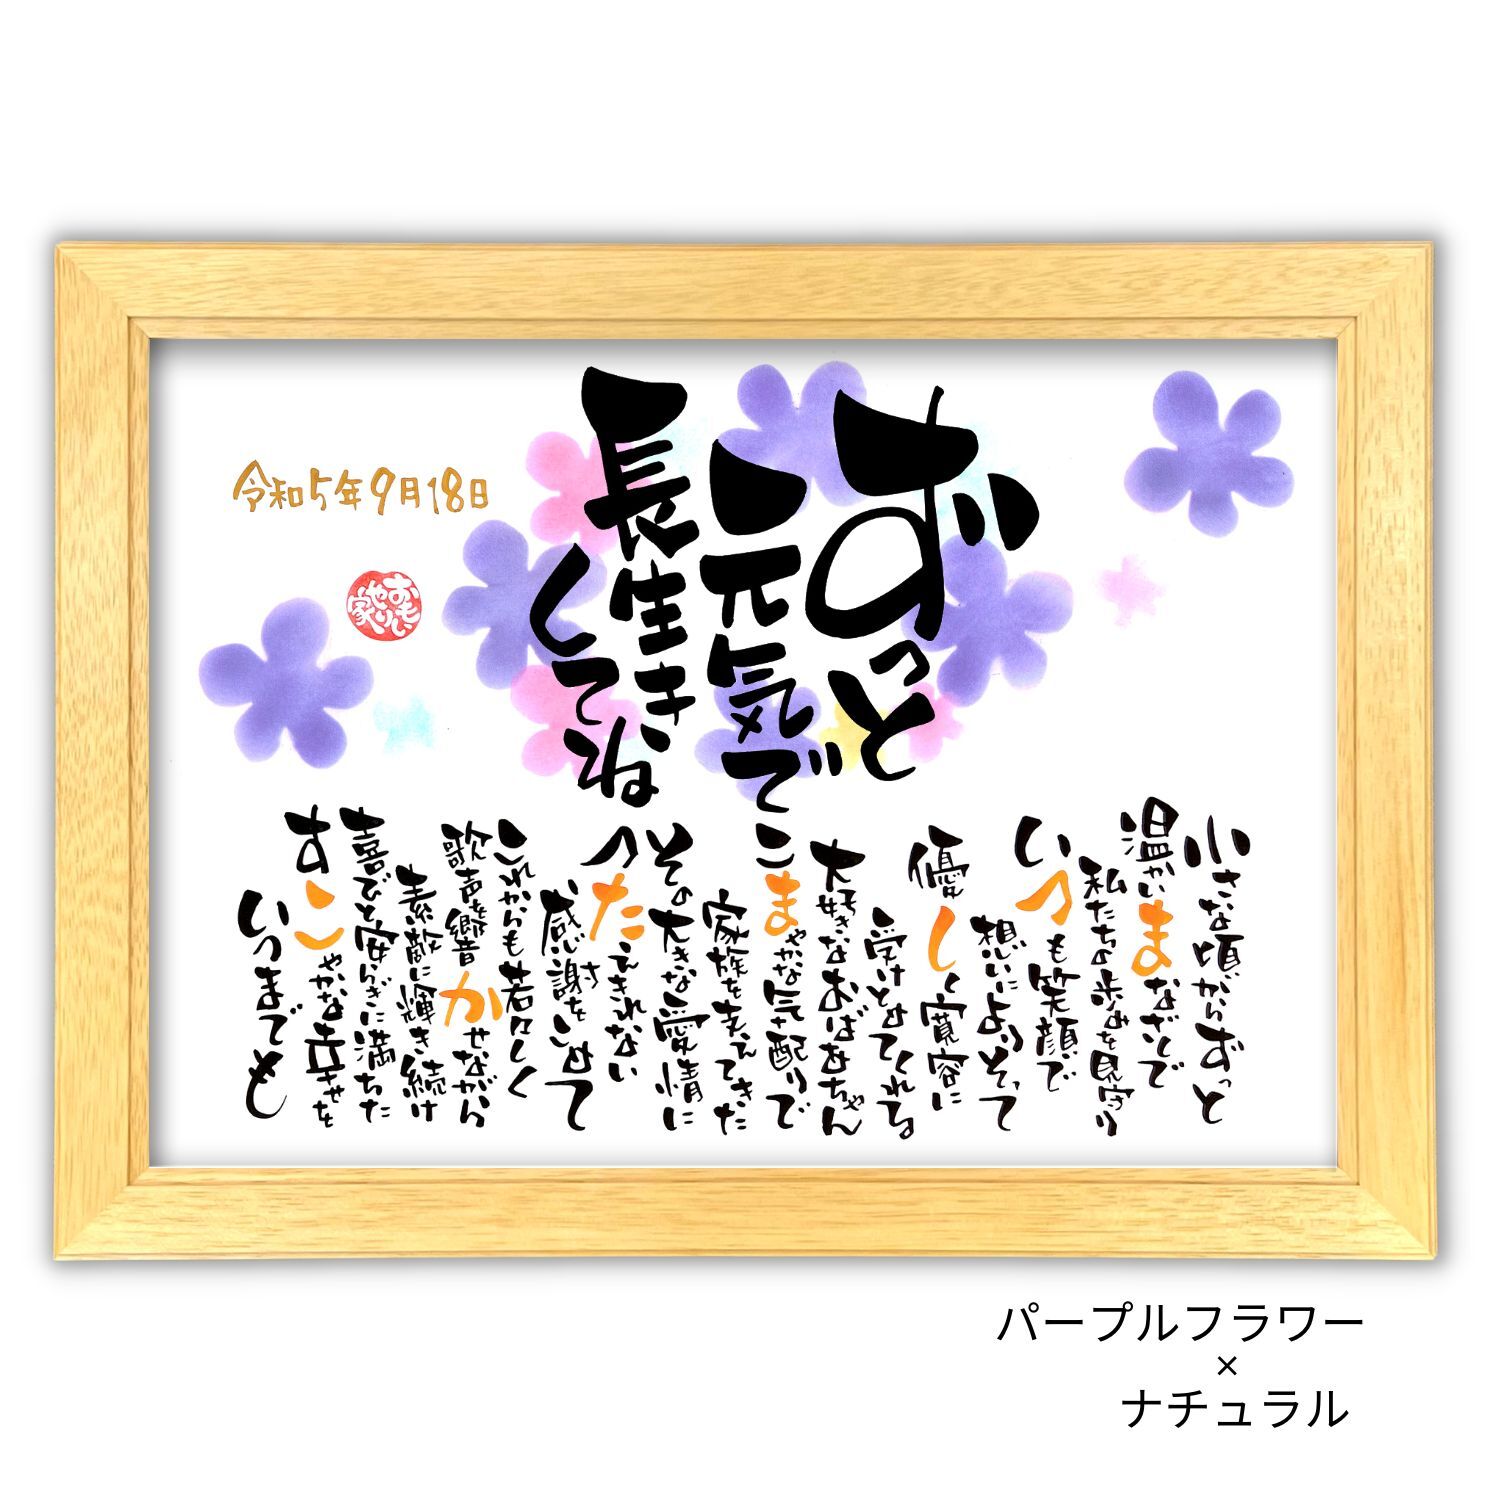 ずっと
元気で
長生き
してね
令和5年9月18日
おもい
やり
家
小さな頃からずっと
温かいまなざしで
私たちの歩みを見守り
いつも笑顔で
想いによりそって
優しく寛容に
受けとめてくれる
大好きなおばあちゃん
こまやかな気配りで
家族を支えてきた
その大きな愛情に
つたえきれない
感謝をこめて
これからも若々しく
歌声を響かせながら
素敵に輝き続け
喜びと安らぎに満ちた
すこやかな幸せを
いつまでも
パープルフラワー
×
ナチュラル